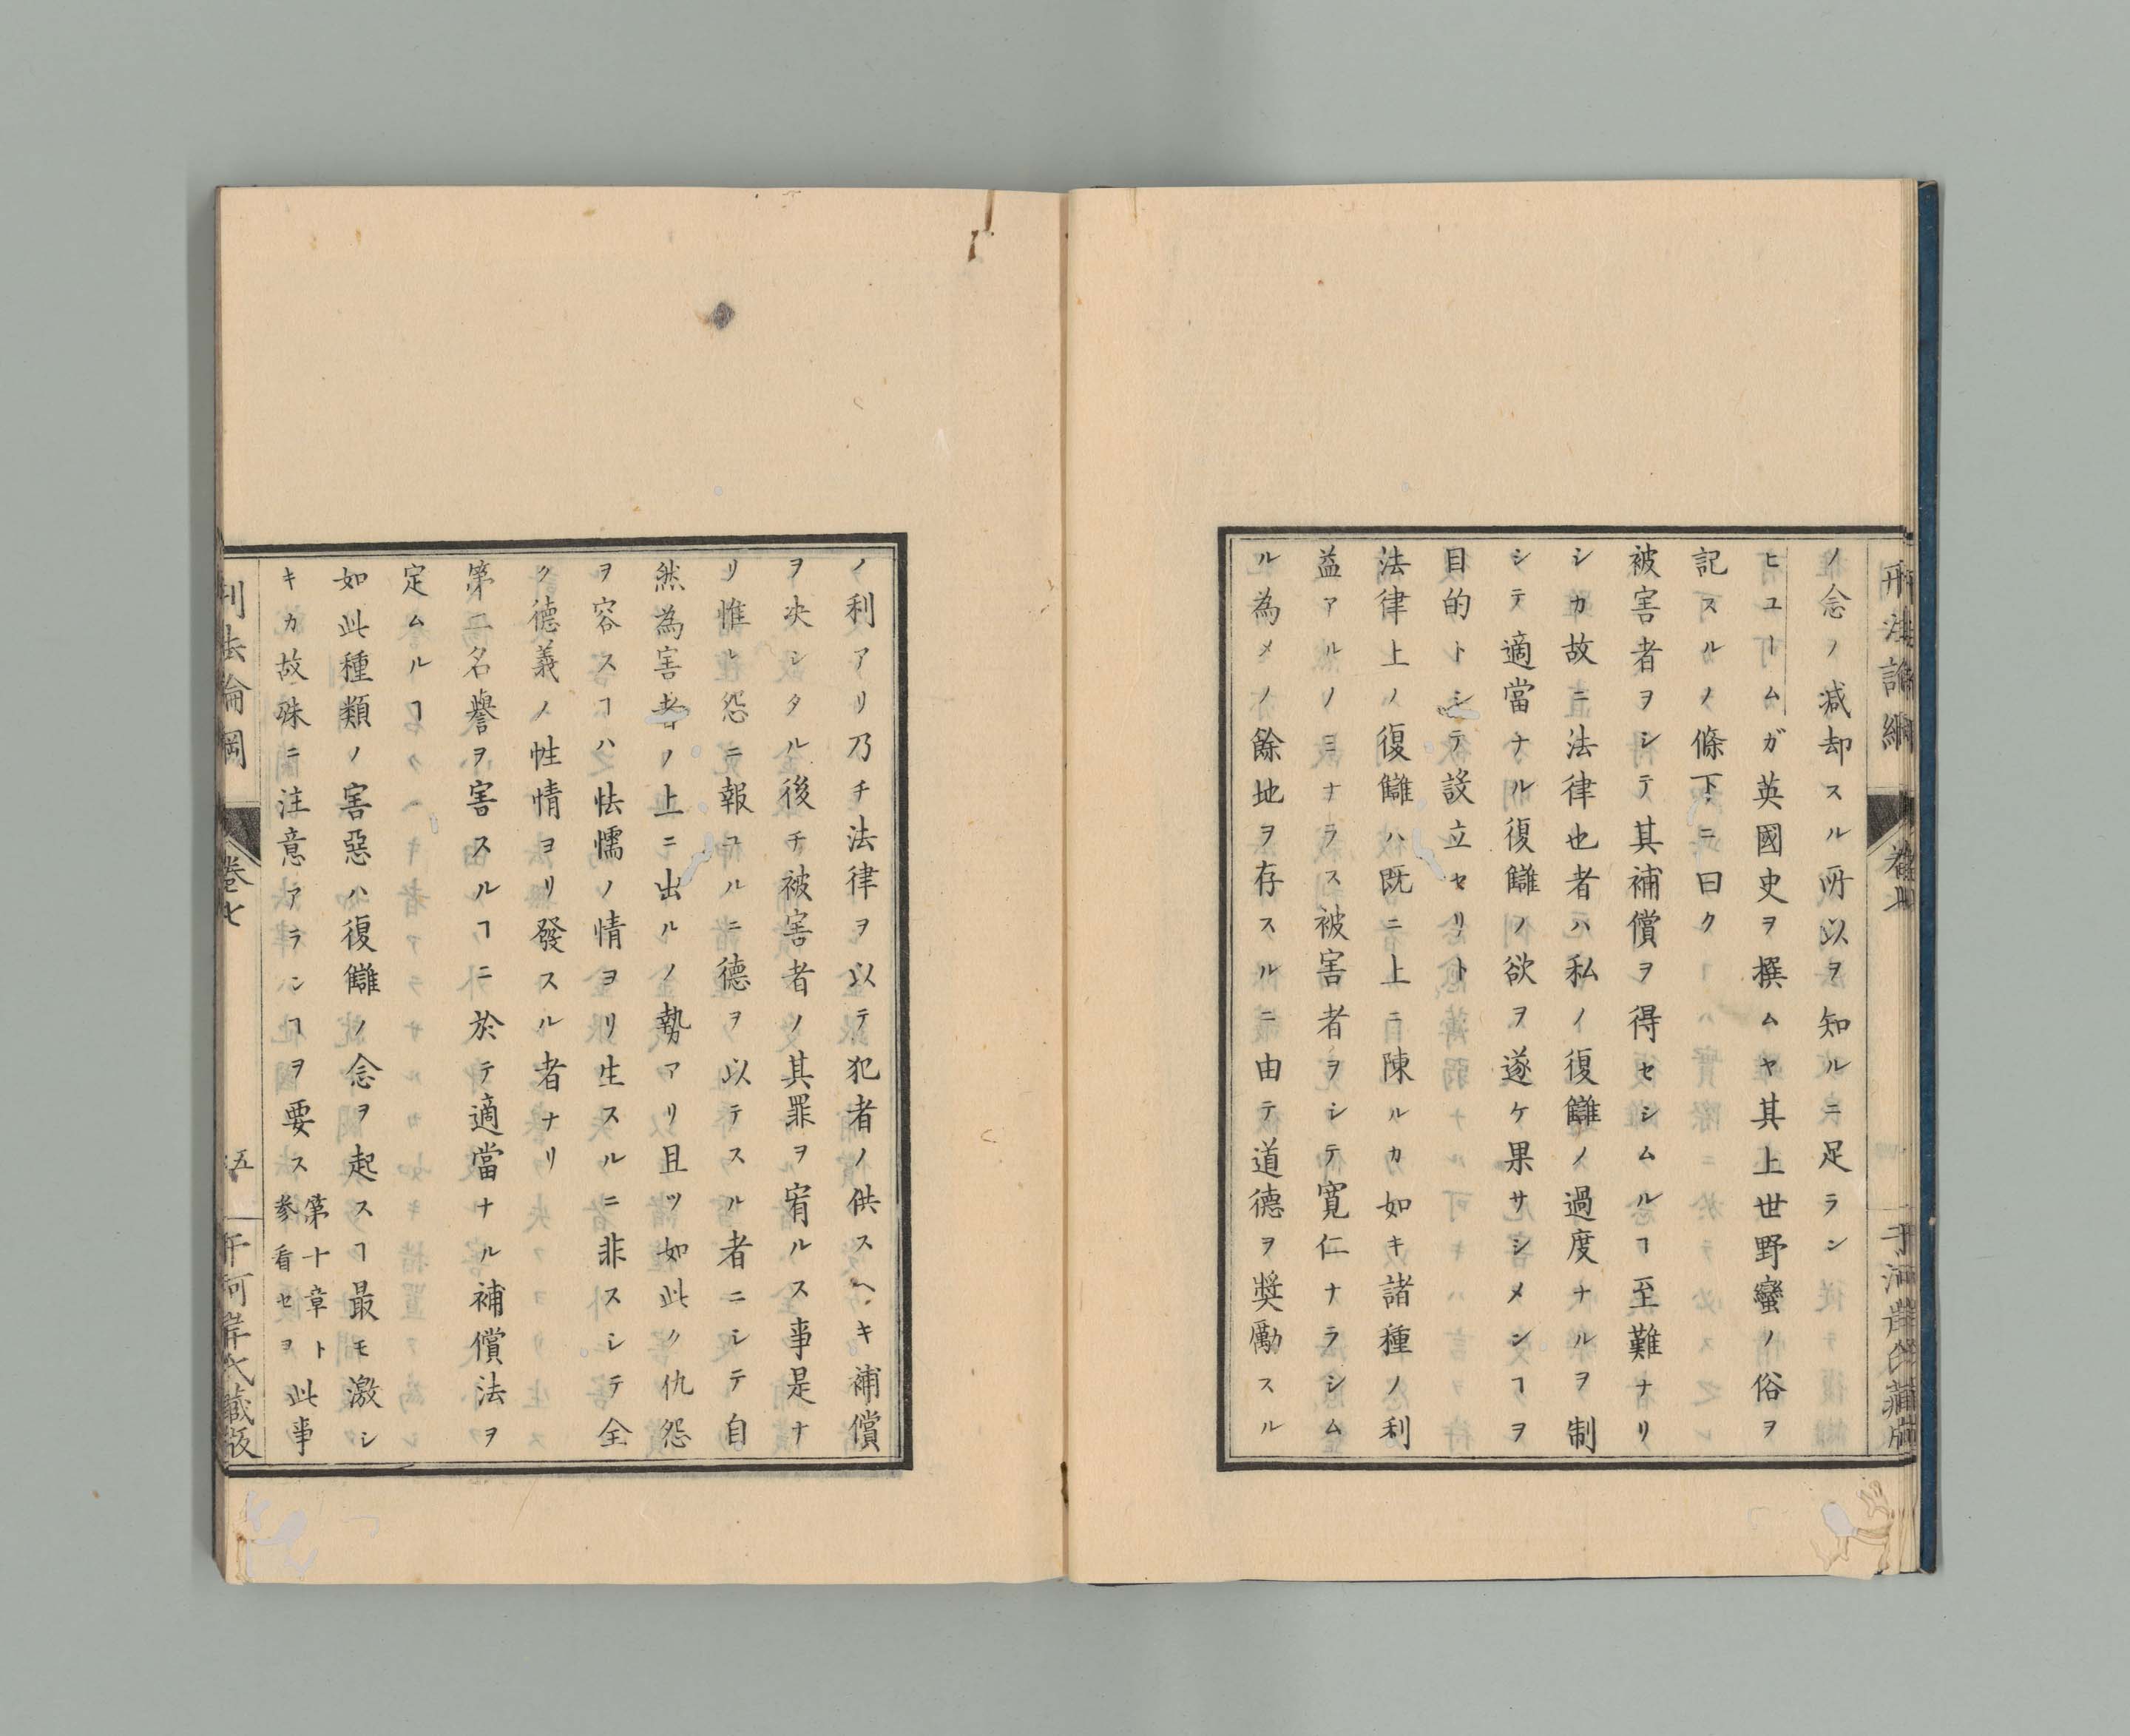 刑法論綱
卷七
千河岸氏藏版
ノ念ノ減却スル所以ヲ知ルニ足ラン
ヒユームガ英國史ヲ撰ムヤ其上世野蠻ノ俗ヲ
記スルノ條下ニ曰ク
被害者ヲシテ其補償ヲ得セシムルヿ至難ナリ
シカ故ニ法律也者ハ私ノ復讎ノ過度ナルヲ制
シテ適當ナル復讎ノ欲ヲ遂ケ果サシメンヿヲ
目的トシテ設立セリト
法律上ノ復讎ハ既ニ上ニ陳ルカ如キ諸種ノ利
益アルノミナラス被害者ヲシテ寛仁ナラシム
ル為メノ餘地ヲ存スルニ由テ道德ヲ奬勵スル
ノ利アリ乃チ法律ヲ以テ犯者ノ供スヘキ補償
ヲ决シタル後チ被害者ノ其罪ヲ宥ルス事是ナ
リ惟レ怨ニ報ユルニ德ヲ以テスル者ニシテ自
然為害者ノ上ニ出ルノ勢アリ且ツ如此ク仇怨
ヲ容スヿハ怯懦ノ情ヨリ生スルニ非スシテ全
ク德義ノ性情ヨリ發スル者ナリ
第二名譽ヲ害スルヿニ於テ適當ナル補償法ヲ
定ムルヿ
如此種類ノ害惡ハ復讎ノ念ヲ起スヿ最モ激シ
キカ故殊ニ注意アランヿヲ要ス第十章ト此事
參看セヨ
刑法論綱
卷七
五
千河岸氏藏版